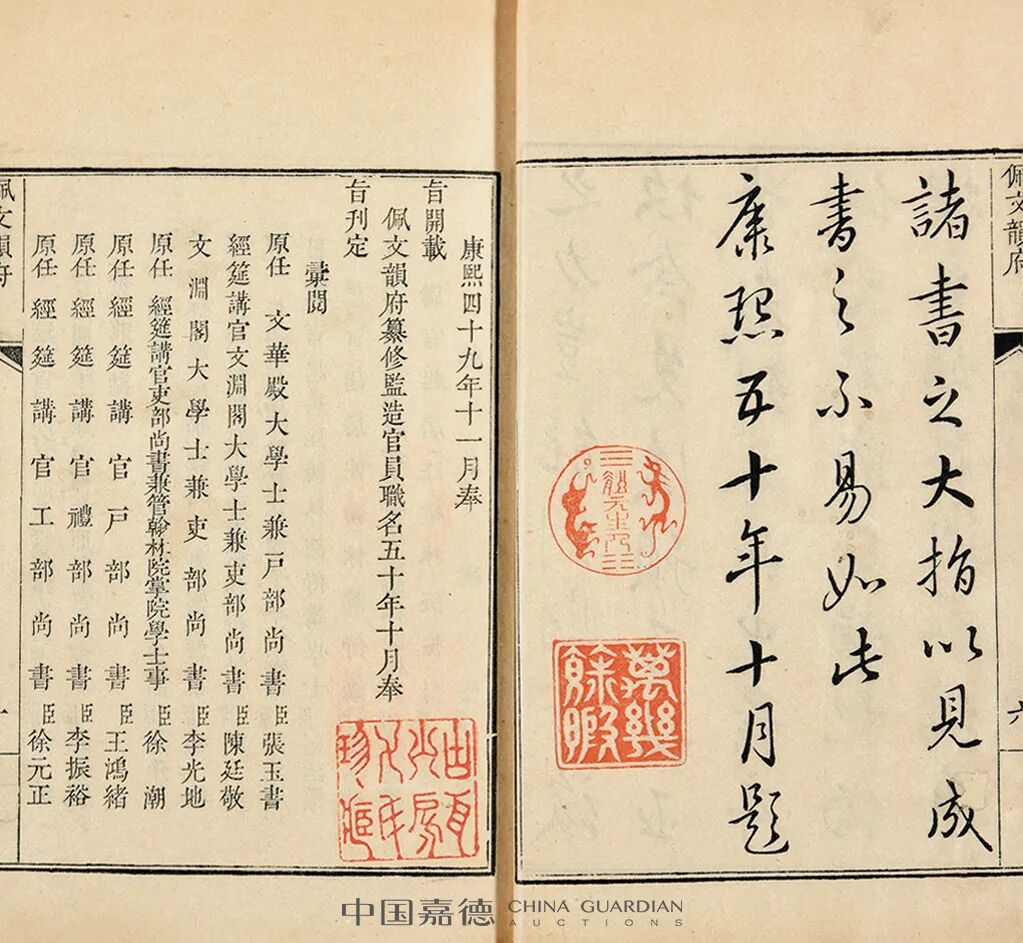 諸書之大指以見成
書之不易如此
康熙五十年十月題
萬幾
餘暇
佩文韻府
六
康熙四十九年十一月奉
旨開載
佩文韻府纂修監造官員職名五十年十月奉
旨刊定
彙閱
原任文華殿大學士兼戶部尚書臣張玉書
經筵講官文淵閣大學士兼吏部尚書臣陳廷敬
文淵閣大學士兼吏部尚書臣李光地
原任經筵講官吏部尚書兼管翰林院掌院學士事臣徐潮
原任經筵講官戶部尚書臣王鴻緒
原任經筵講官禮部尚書臣李振裕
原任經筵講官工部尚書臣徐元正
佩文韻府
一
中国嘉德 CHINA GUARDIAN
AUCTIONS